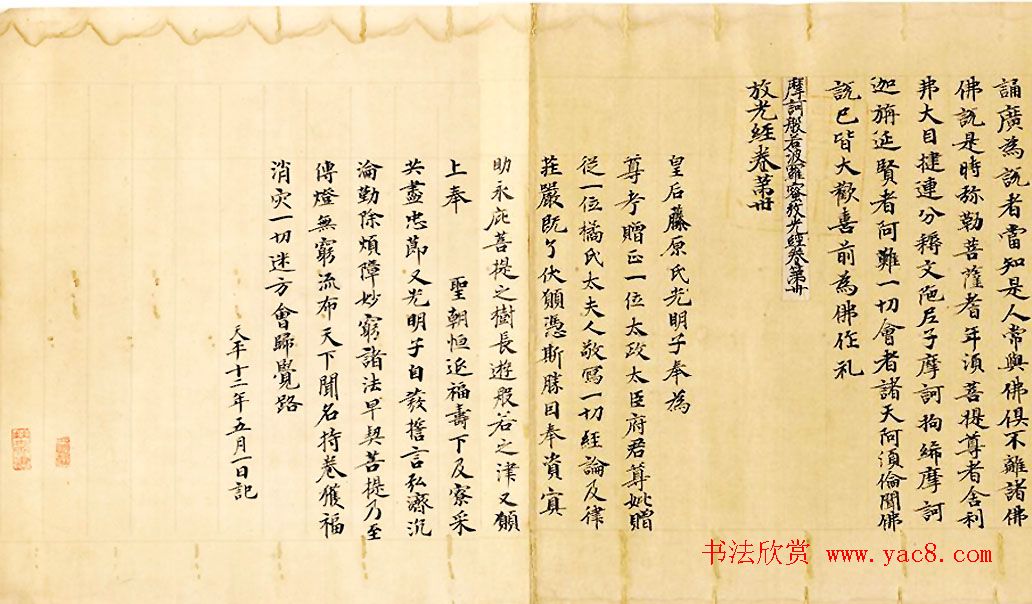 誦廣為説者當知是人常與佛俱不離諸佛
佛説是時弥勒菩薩耆年須菩提尊者舍利
弗大目揵連分耨文陁尼子摩訶拘絺摩訶
迦旃延賢者阿難一切會者諸天阿須倫聞佛
説已皆大歡喜前為佛作礼
摩訶般若波羅蜜放光經卷第卅
放光經卷第卅
皇后藤原氏光明子奉為
尊考贈正一位太政太臣府君尊妣贈
從一位橘氏太夫人敬寫一切經論及律
莊嚴既了伏願憑斯勝因奉資冥
助永庇菩提之樹長遊般若之津又願
上奉 聖朝恒延福壽下及寮采
共盡忠節又光明子自發誓言弘濟沉
淪勤除煩障妙窮諸法早契菩提乃至
傳燈無窮流布天下聞名持卷獲福
消灾一切迷方會歸覺路
天平十二年五月一日記
书法欣赏 www.yac8.com